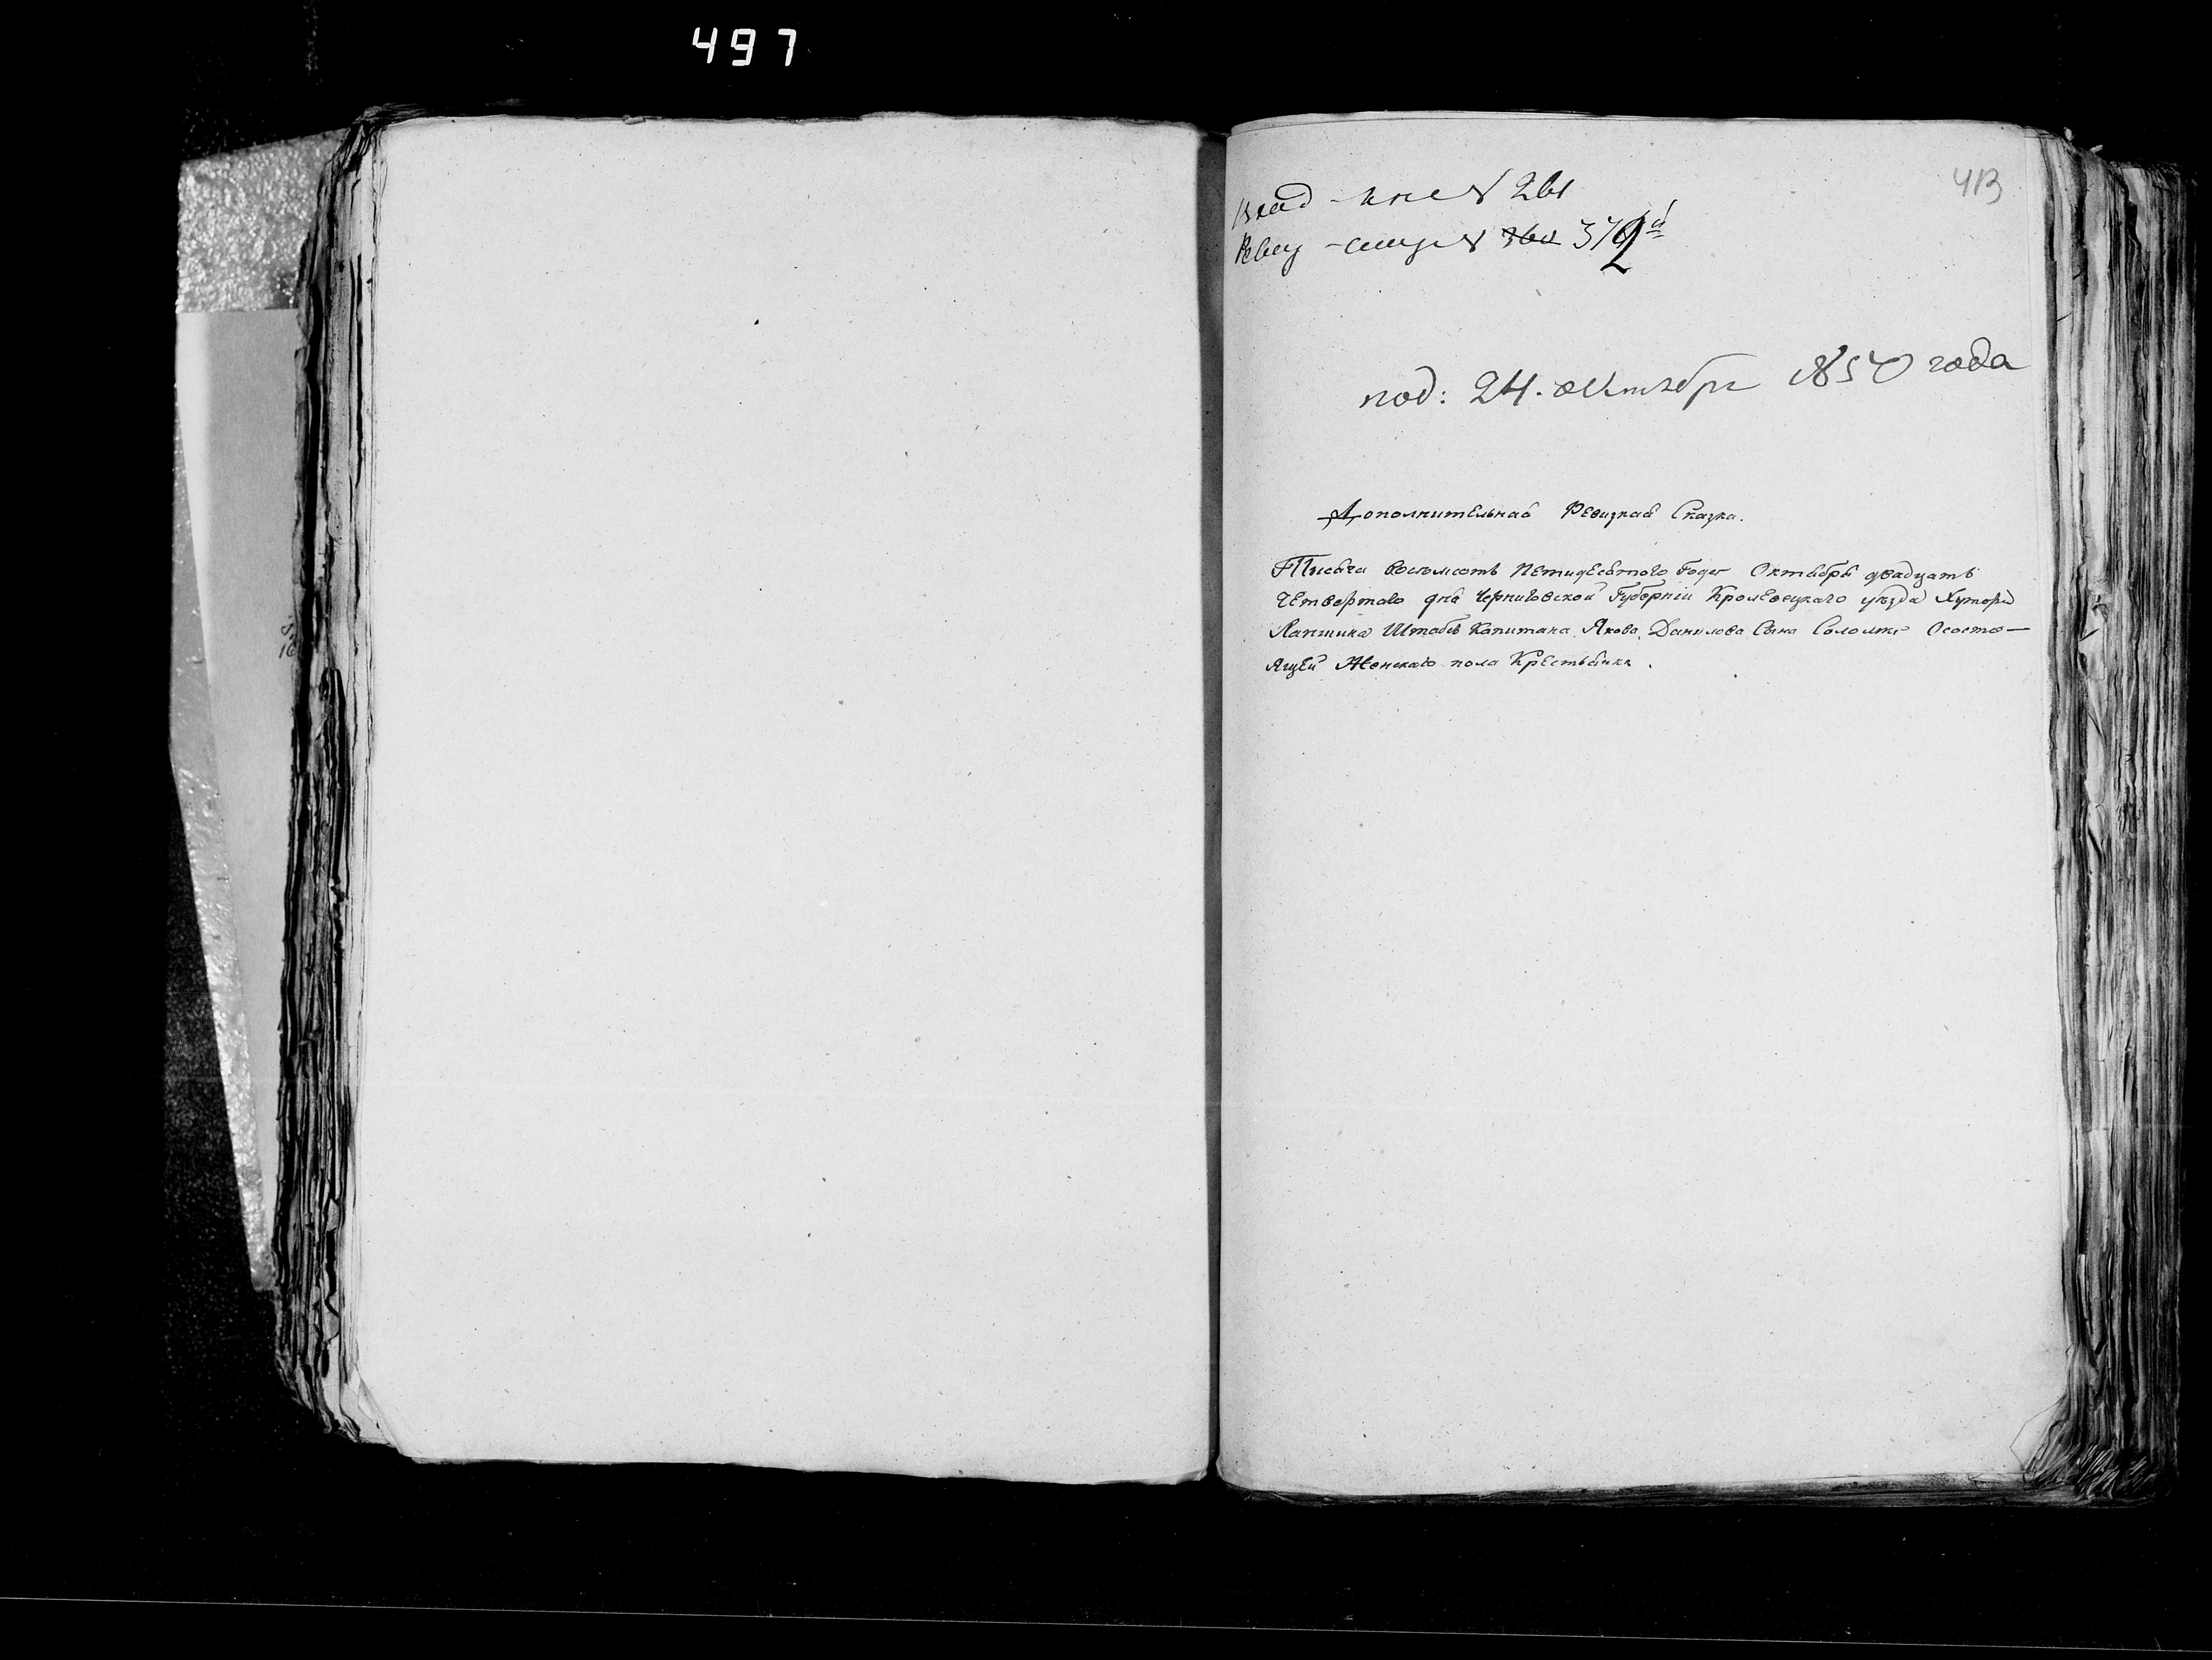 497
413
Вход - кн № 261
Ревиз - сказ № 360 372й
под: 24. октября 1850 года
Дополнительная Ревизкая Сказка.
Тысяча восемсотъ Петидесятого Года Октября двадцать
Четвертого дня Черниговской Губернии Кролевецкаго уезда Хутора
Лапшина Штабсъ Капитана Якова Данилова Сына Соломки Ососто—
Ящей Женскаго пола Крестьянки.